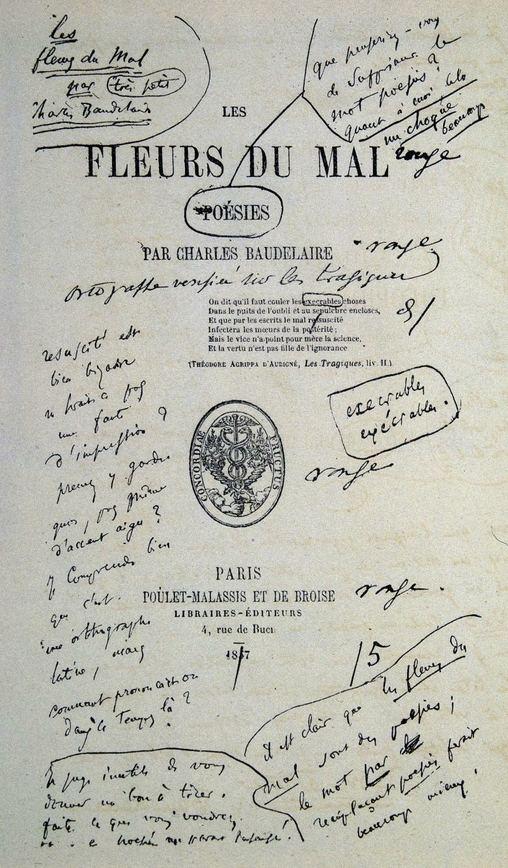 Les
fleurs du Mal
par très petit
Charles Baudelaire
que penseriez-vous
de supprimer le
mot poésies ?
quant à moi cela
me choque
beaucoup
LES
FLEURS DU MAL
rouge
POÉSIES
PAR CHARLES BAUDELAIRE
rouge
ortographe verifiée sur les tragiques
On dit qu'il faut couler les execrables choses
Dans le puits de l'oubli et au sepulchre encloses,
Et que par les escrits le mal resuscité
Infectera les mœurs de la postérité ;
Mais le vice n'a point pour mère la science,
Et la vertu n'est pas fille de l'ignorance
(THÉODORE AGRIPPA D'AUBIGNÉ, Les Tragiques, liv. II.)
resuscité est
bien bizarre
ne serait-ce pas
une faute
d'impression ?
prenez y garde
quoi, pas même
d'accent aigu ?
je comprends bien
que c'est
une orthographe
latine, mais
comment prononçait-on
dans ce temps là ?
execrables
exécrables.
CONCORDIÆ FRUCTUS
rouge
PARIS
POULET-MALASSIS ET DE BROISE
rouge.
LIBRAIRES-ÉDITEURS
4, rue de Buci
1857
/5
il est clair que les fleurs du
mal sont des poésies ;
le mot par
remplaçant poésies ferait
beaucoup mieux.
Je juge inutile de vous
donner un bon à tirer.
faites ce que vous voudrez,